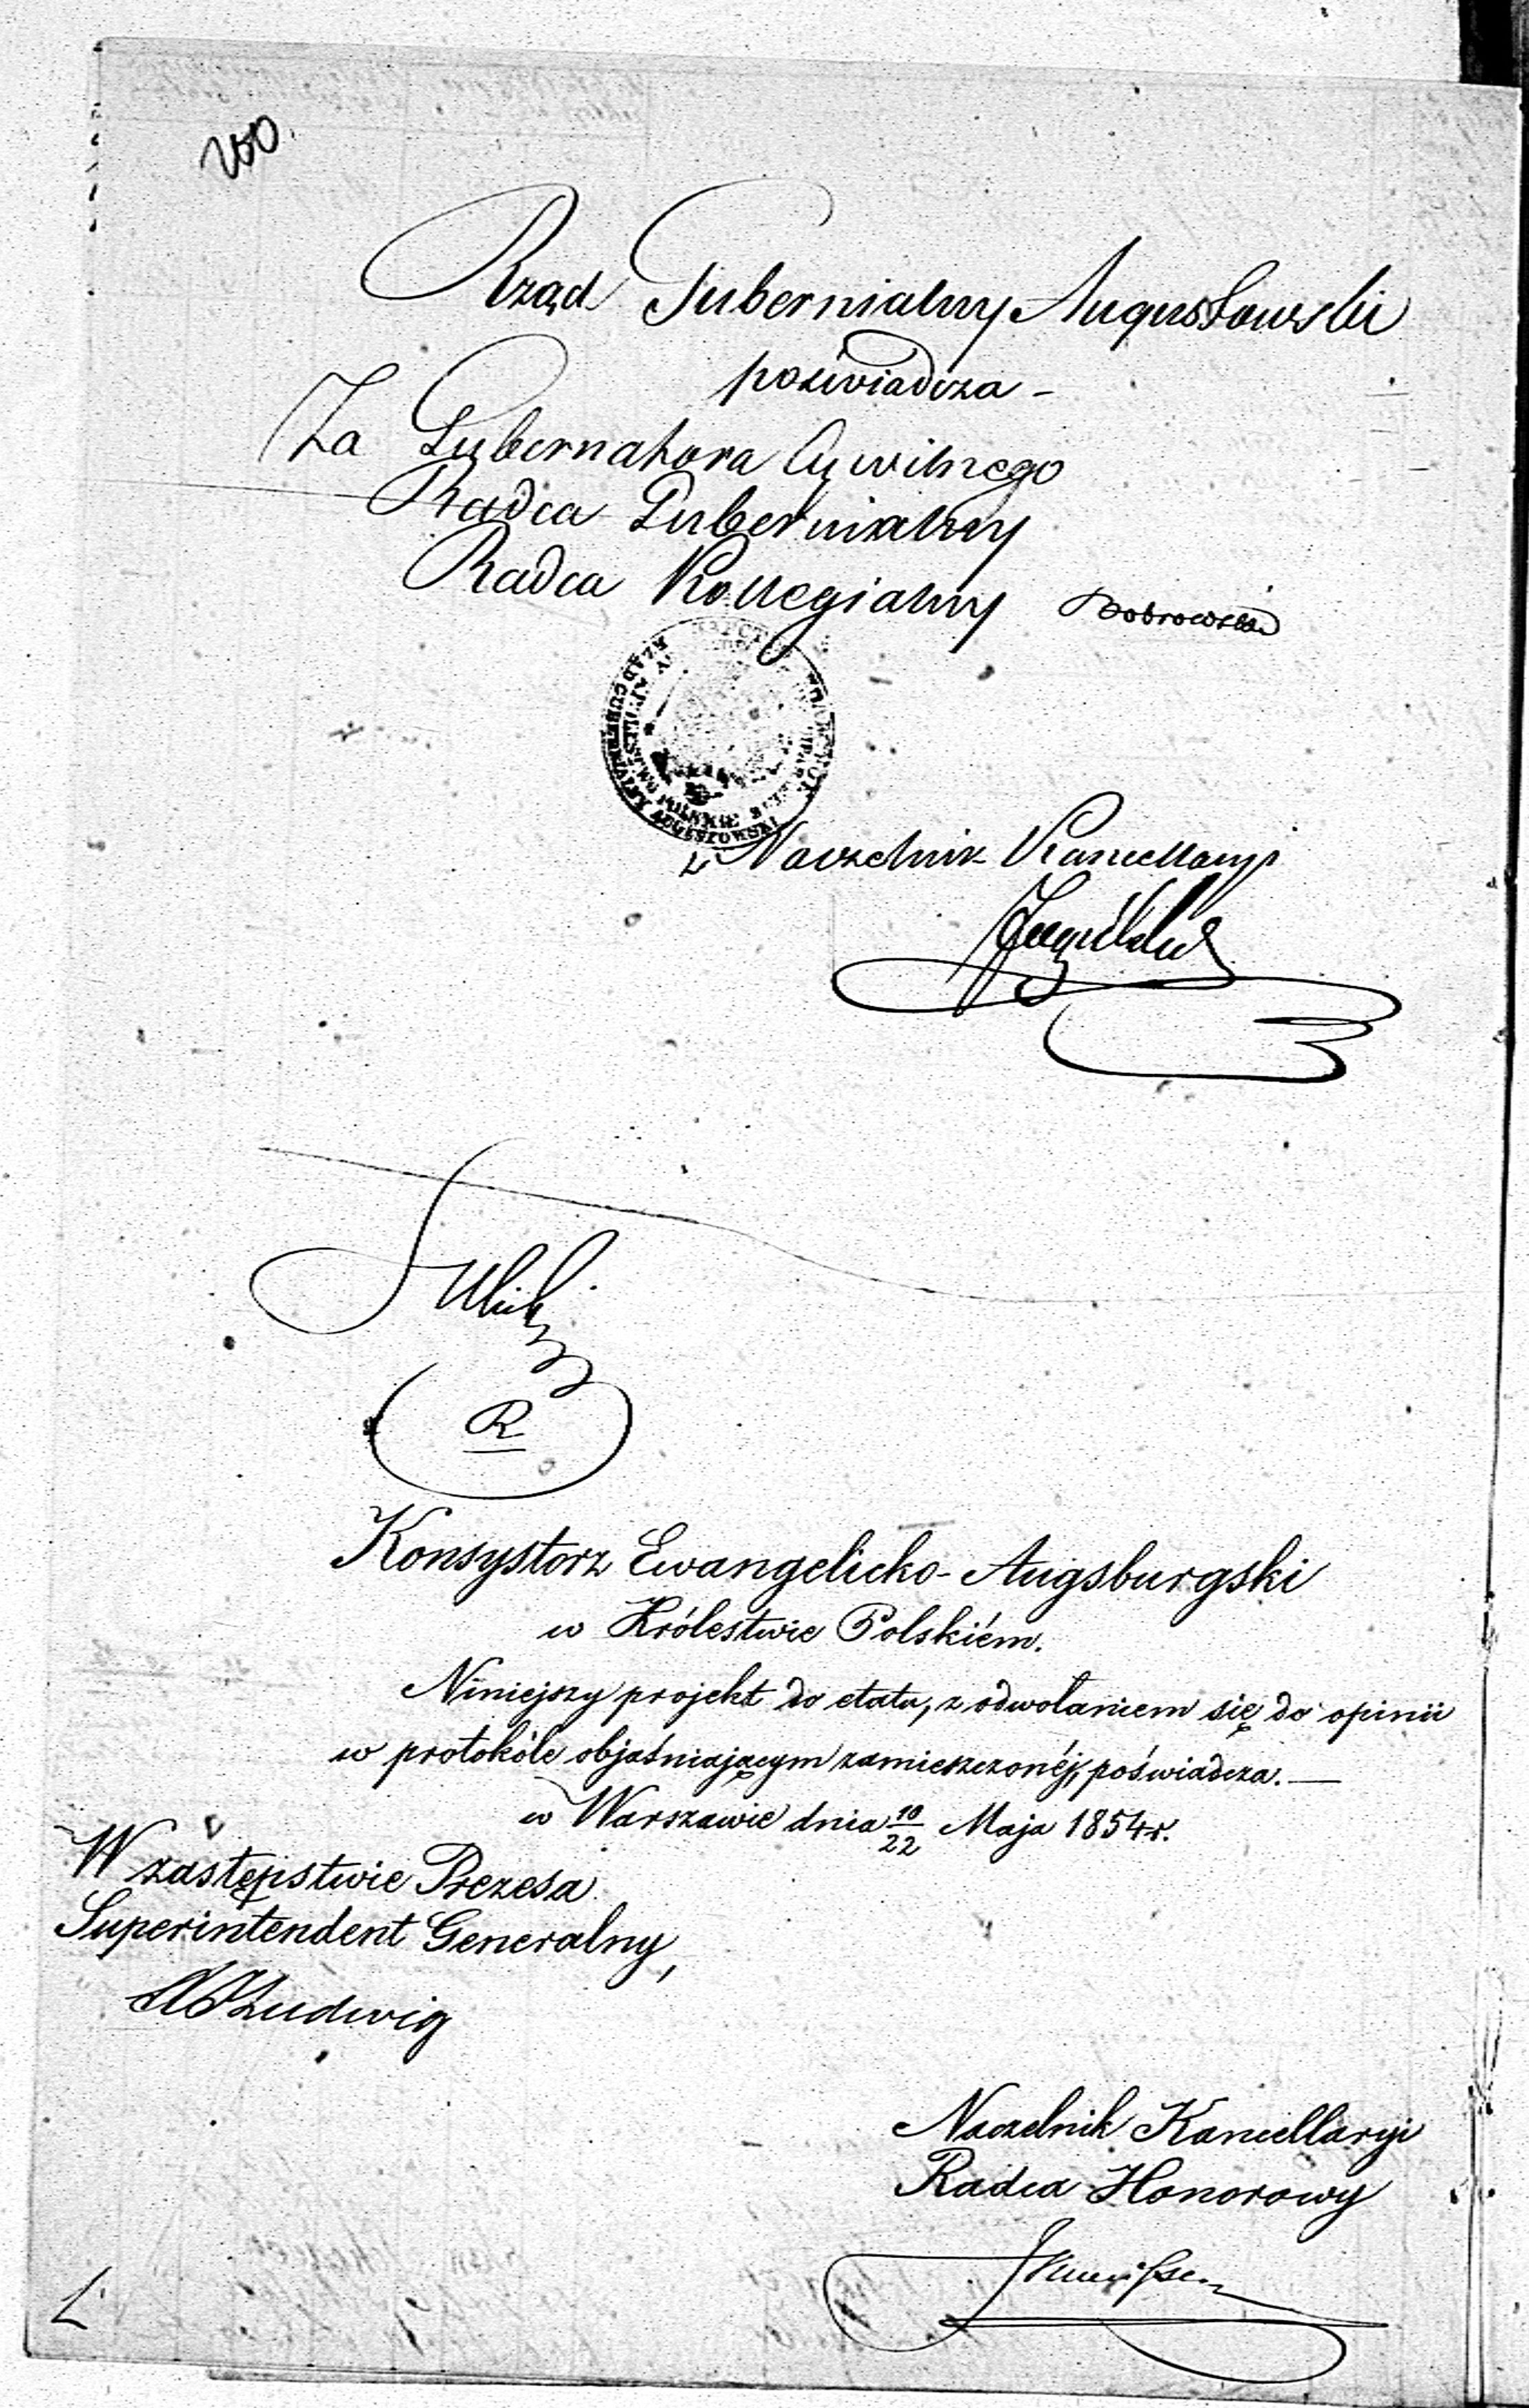 200.
Rząd Gubernialny Augustowski
poświadcza -
Za Gubernatora Cywilnego
Radca Gubernialny
Radca Kollegialny Dobrowolski
RZĄD GUBERNIALNY AUGUSTOWSKI
Naczelnik Kancellaryi
R
Konsystorz Ewangelicko-Augsburgski
w Królestwie Polskiém.
Niniejszy projekt do etatu, z odwołaniem się do opinii
w protokóle objaśniającym zamieszczonéj, poświadcza. —
w Warszawie dnia 10/22 Maja 1854 r.
W zastępstwie Prezesa
Superintendent Generalny,
Ludwig
Naczelnik Kancellaryi
Radca Honorowy